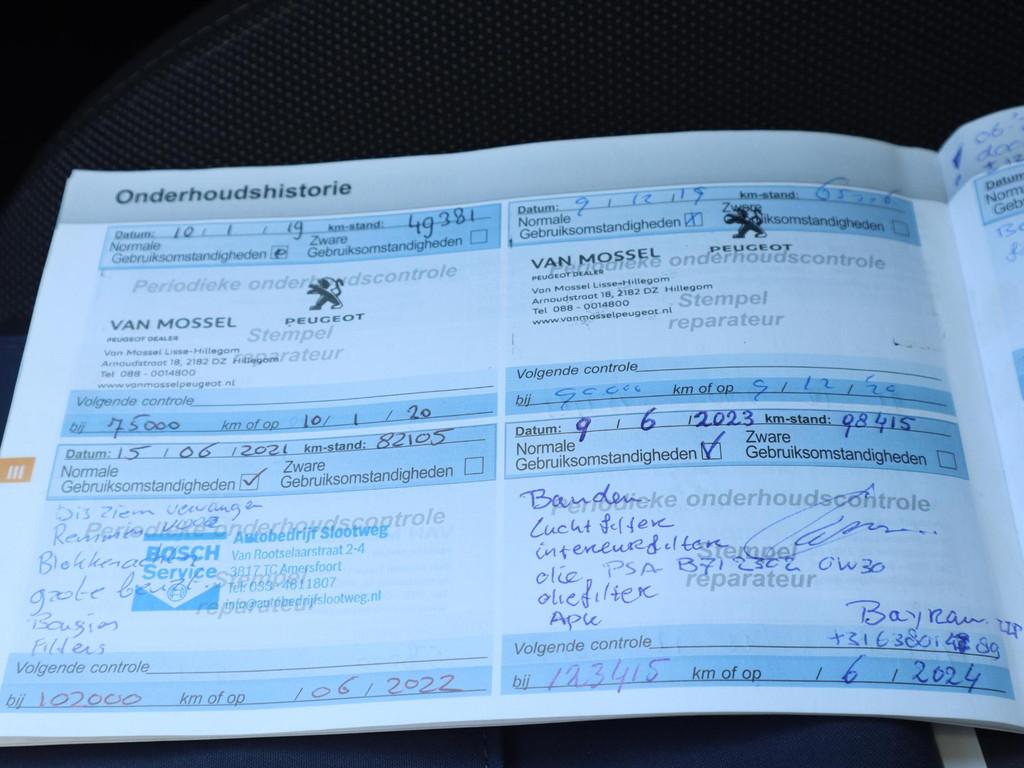 Onderhoudshistorie
Datum: 10 / 1 / 19 km-stand: 49381
Normale
Gebruiksomstandigheden
Zware
Gebruiksomstandigheden
Periodieke onderhoudscontrole
VAN MOSSEL
PEUGEOT DEALER
PEUGEOT
Stempel
reparateur
Van Mossel Lisse-Hillegom
Arnoudstraat 18, 2182 DZ Hillegom
Tel 088 - 0014800
www.vanmosselpeugeot.nl
Volgende controle
bij 75000 km of op 10/ 1 / 20
Datum: 9 / 12 / 19 km-stand:
Normale
Gebruiksomstandigheden
Zware
Gebruiksomstandigheden
Periodieke onderhoudscontrole
VAN MOSSEL
PEUGEOT DEALER
PEUGEOT
Van Mossel Lisse-Hillegom
Arnoudstraat 18, 2182 DZ Hillegom
Tel 088 - 0014800
www.vanmosselpeugeot.nl
Stempel
reparateur
Volgende controle
bij 90000 km of op 9 / 12 / 20
III
Datum: 15 / 06 / 2021 km-stand: 82105
Normale
Gebruiksomstandigheden
Zware
Gebruiksomstandigheden
Periodieke onderhoudscontrole
BOSCH
Service
Autobedrijf Slootweg
Van Rootselaarstraat 2-4
3817 TC Amersfoort
Tel: 033-4611807
info@autobedrijfslootweg.nl
Stempel
reparateur
grote beurt
Bougies
Filters
Volgende controle
bij 102000 km of op / 06 / 2022
Datum: 9 / 6 / 2023 km-stand: 98415
Normale
Gebruiksomstandigheden
Zware
Gebruiksomstandigheden
Periodieke onderhoudscontrole
Stempel
reparateur
Banden
Luchtfilter
interieurfilter
olie PSA B712302 0W30
oliefilter
APK
Bayram
Volgende controle
bij 123415 km of op / 6 / 2024
Datum